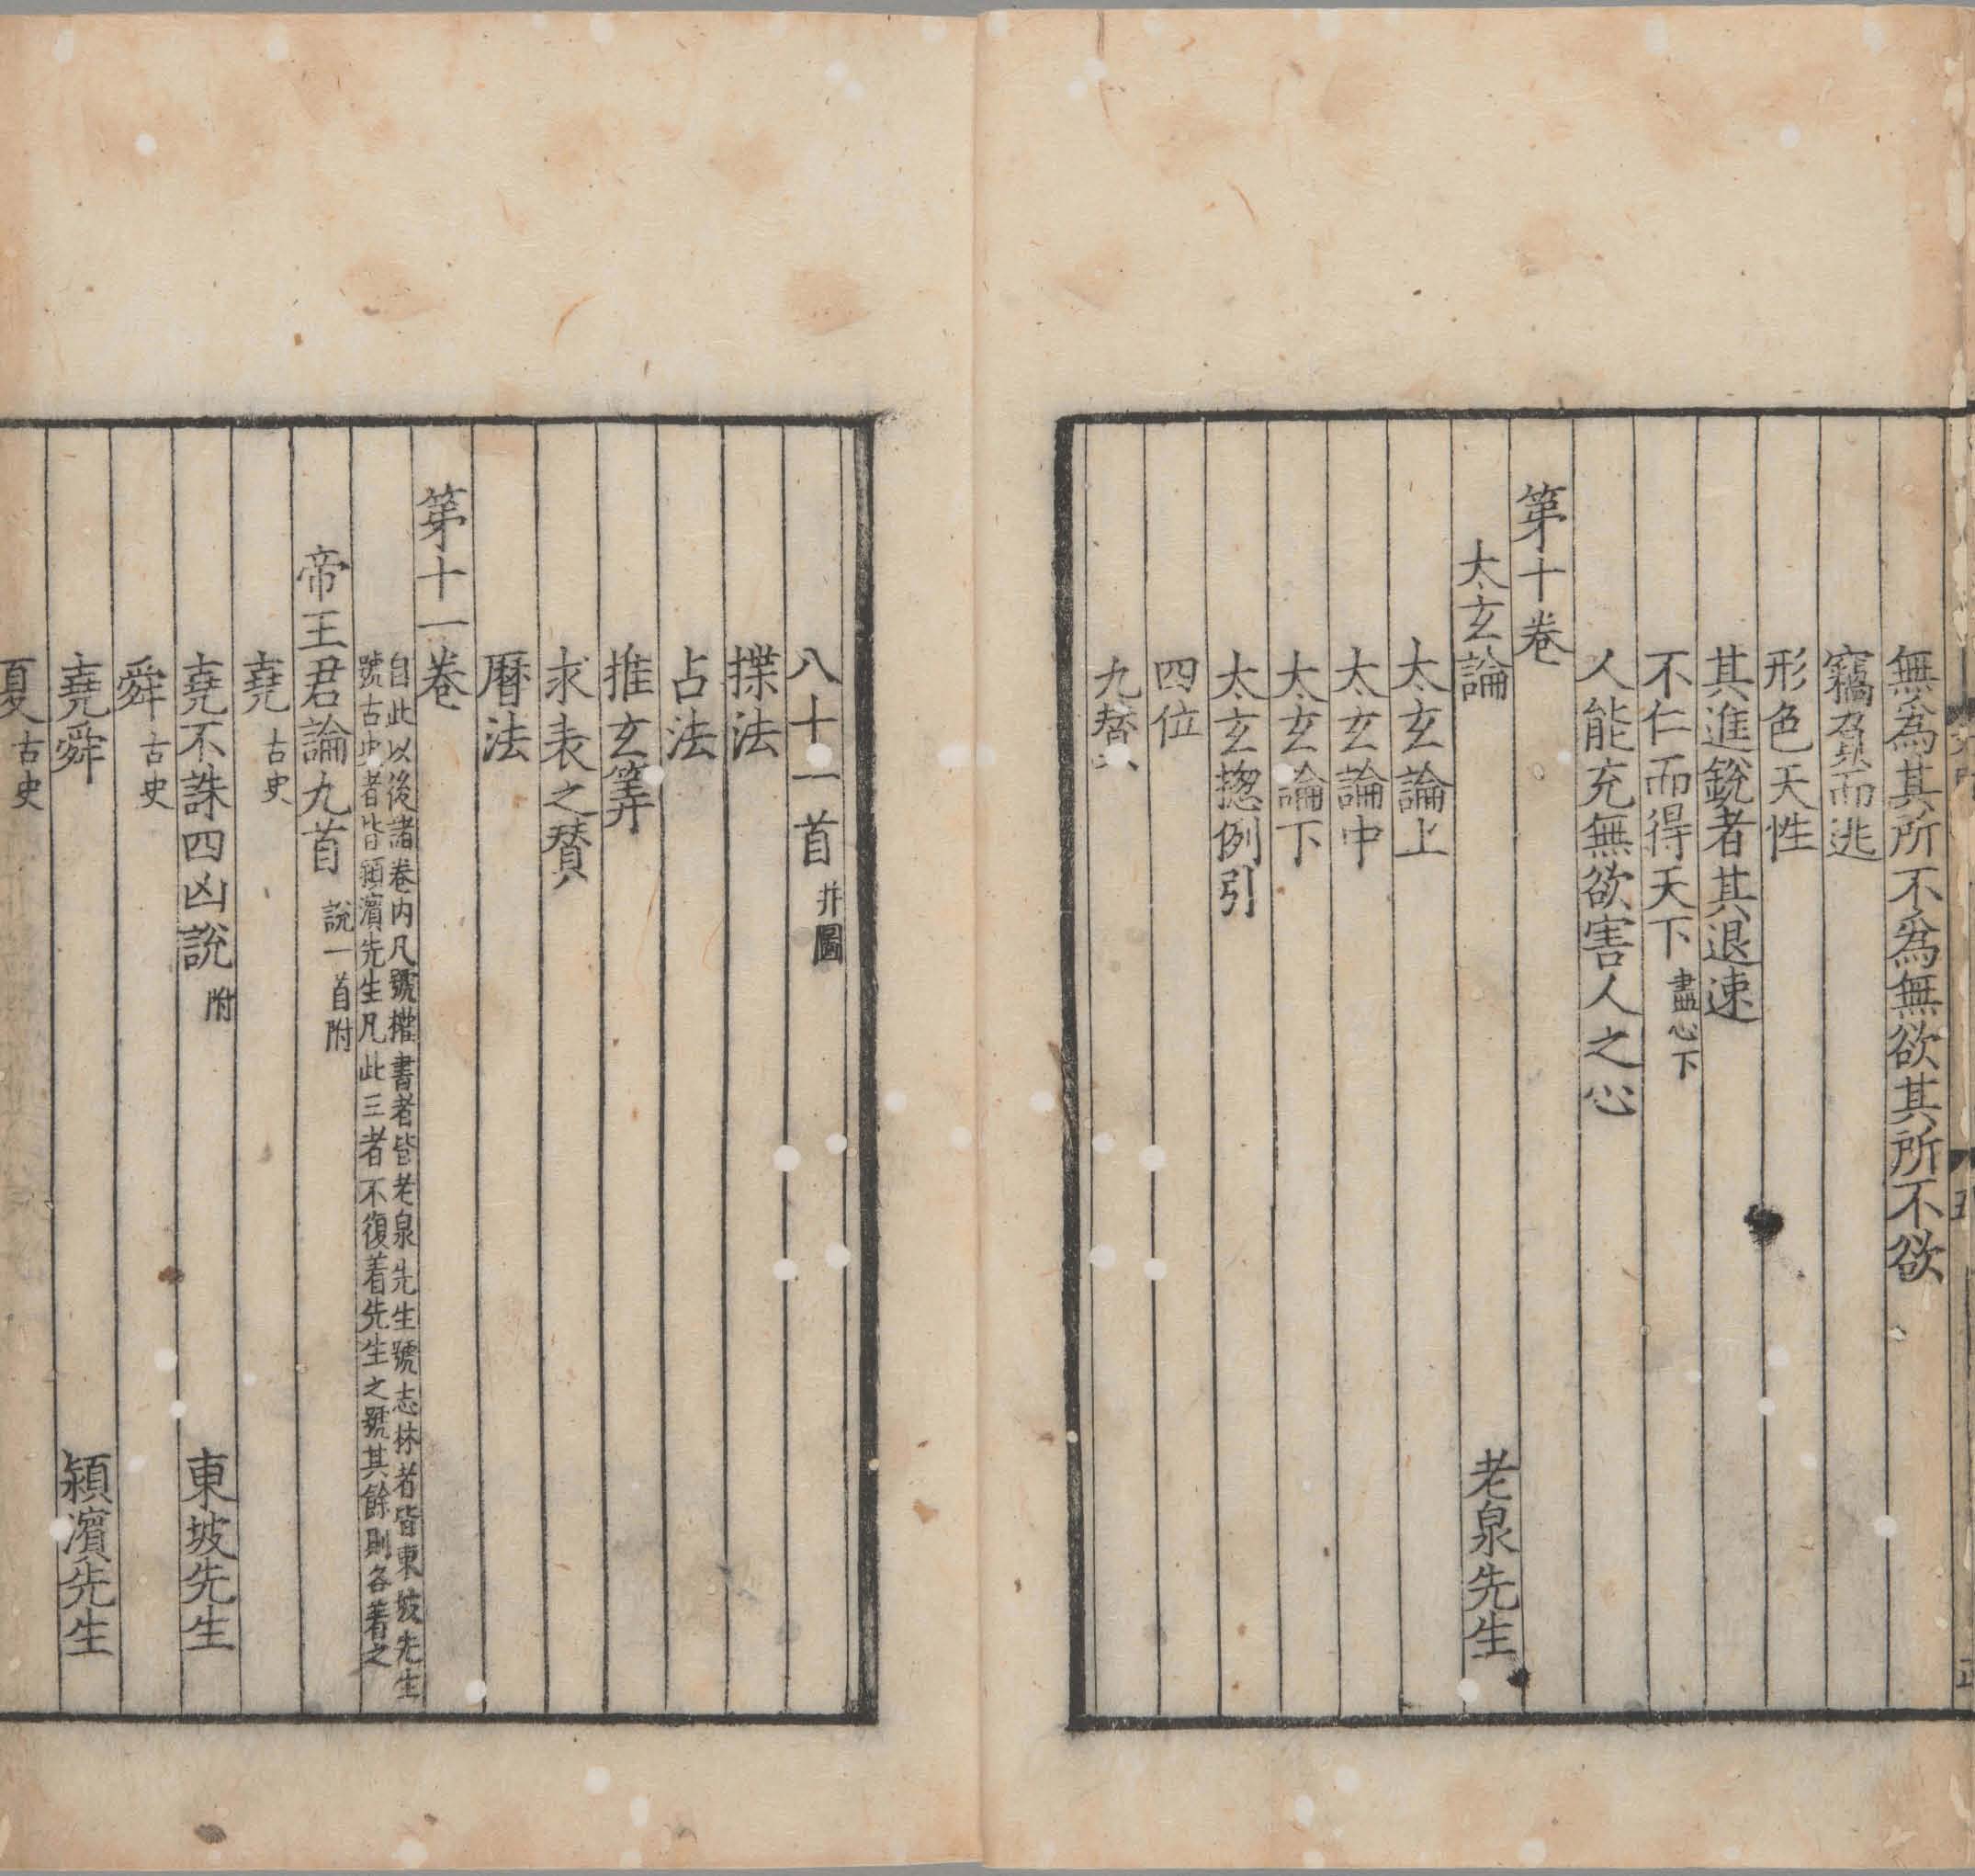 無為其所不爲無欲其所不欲
竊負而逃
形色天性
其進銳者其退速
不仁而得天下 盡心下
人能充無欲害人之心
第十卷
太玄論 老泉先生
太玄論上
太玄論中
太玄論下
太玄揔例引
四位
九賛
八十一首 并圖
揲法
占法
推玄筭
求表之賛
曆法
第十一卷
自此以後諸卷内凡號權書者皆老泉先生號志林者皆東坡先生
號古史者皆潁濵先生凡此三者不復着先生之號其餘則各著之
帝王君論九首 說一首附
堯 古史
堯不誅四凶說 附 東坡先生
舜 古史
堯舜 潁濵先生
夏 古史